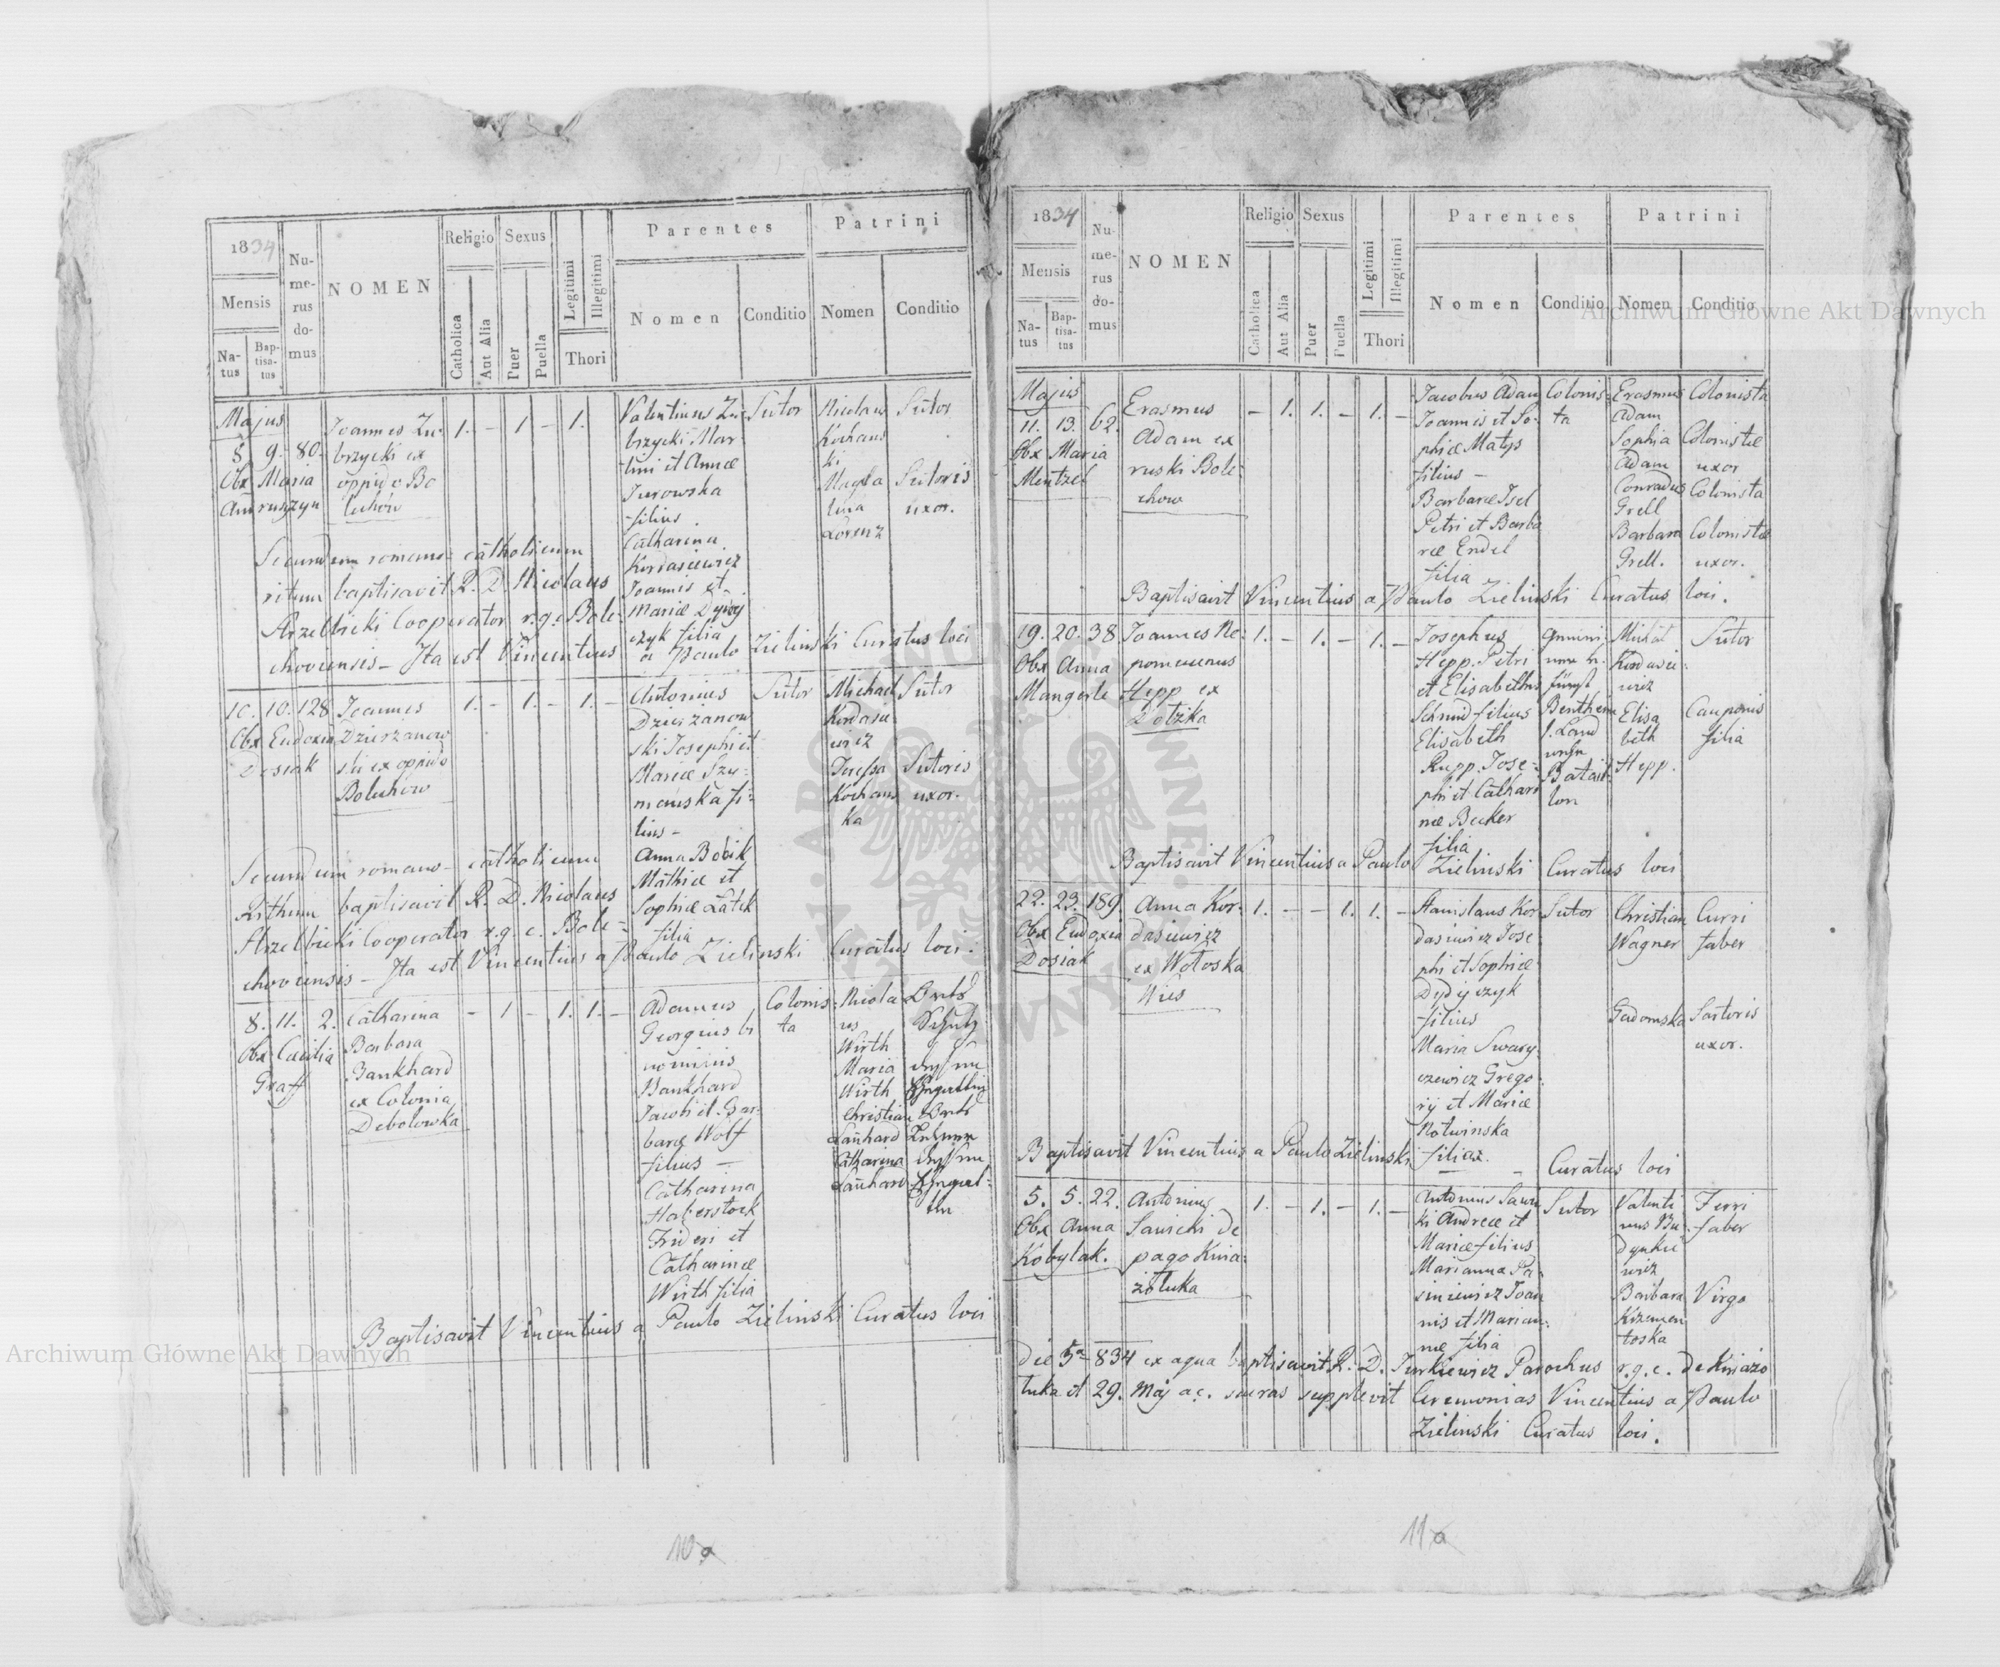 1834
Mensis
Na-
tus
Bap-
tisa-
tus
Nu-
me-
rus
do-
mus
NOMEN
Religio
Catholica
Aut Alia
Sexus
Puer
Puella
Legitimi
Illegitimi
Thori
Parentes
Nomen
Conditio
Patrini
Nomen
Conditio
Majus
8 9. 80.
Obx Maria
Joannes Zu-
brzycki ex
oppido Bo
lechów
1. - 1 - 1.
Valentinus Zu-
brzycki Mar-
tini et Annæ
Jurowska
filius.
Catharina
Kordasiewicz
Joannis et
Mariæ Dydy
czyk filia
Sutor
Nicolaus
Kochans
ki
Magda
lena
Lorenz
Sutor
Sutoris
uxor.
Secundum romano-catholicum
ritum baptisavit R. D. Nicolaus
Strzelbicki Cooperator r.g.c. Bole-
chovensis - Ita est Vincentius a Paulo Zielinski Curatus loci
10. 10. 128
Obx Eudoxia
Dosiak
Joannes
Dzierżanow
ski ex oppido
Bolechow
1. - 1. - 1. -
Antonius
Dzierżanow
ski Josephi et
Mariæ Szy-
manska fi-
lius -
Anna Bobik
Mathiæ et
Sophiæ Latek
filia
Sutor
Michael
Kordasie
wicz
Teressa
Kochans
ka
Sutor
Sutoris
uxor.
Secundum romano-catholicum
Rithum baptisavit R. D. Nicolaus
Strzelbicki Cooperator r.g.c. Bole-
chovensis - Ita est Vincentius a Paulo Zielinski Curatus loci.
8. 11. 2.
Obx Cæcilia
Graff
Catharina
Barbara
Bankhard
ex Colonia
Debolowka
- 1 - 1. 1. -
Adamus
Georgius bi
nominis
Bankhard
Jacobi et Bar-
baræ Wolf
filius -
Catharina
Haberstock
Frideri et
Catharinæ
Wirth filia
Colonis-
ta
Nicola
us
Wirth
Maria
Wirth
Christian
Lanhard
Catharina
Lanhard
Baptisavit Vincentius a Paulo Zielinski Curatus loci
10a
1834
Mensis
Na-
tus
Bap-
tisa-
tus
Nu-
me-
rus
do-
mus
NOMEN
Religio
Catholica
Aut Alia
Sexus
Puer
Puella
Legitimi
Illegitimi
Thori
Parentes
Nomen
Conditio
Patrini
Nomen
Conditio
Majus
11. 13. 62.
Obx Maria
Mentzel
Erasmus
Adam ex
ruski Bole-
chow
- 1. 1. - 1. -
Jacobus Adam
Joannis et So-
phiæ Matys
filius -
Barbaræ Isel
Petri et Barba
ræ Endel
filia
Colonis-
ta
Erasmus
Adam
Sophia
Adam
Conradus
Grell
Barbara
Grell.
Colonista
Colonistæ
uxor
Colonista
Colonistæ
uxor.
Baptisavit Vincentius a Paulo Zielinski Curatus loci.
19. 20. 38
Obx Anna
Mangerle
Joannes Ne-
pomucenus
Hepp ex
Dołżka
1. - 1. - 1. -
Josephus
Hepp. Petri
et Elisabethæ
Schmid filius
Elisabeth
Rupp. Jose-
phi et Cathari
næ Becker
filia
Michael
Kordasie-
wicz
Elisa
beth
Hepp.
Sutor
Cauponis
filia
Baptisavit Vincentius a Paulo Zielinski Curatus loci
22. 23. 189.
Obx Eudoxia
Dosiak
Anna Kor-
dasiewicz
ex Wołoska
Wies
1. - - 1. 1. -
Stanislaus Kor
dasiewicz Jose-
phi et Sophiæ
Dydyczyk
filius
Maria Swary-
czewicz Grego-
rij et Mariæ
Rotwinska
filiæ.
Sutor
Christian
Wagner
Gadomska
Curri
faber
Sartoris
uxor.
Baptisavit Vincentius a Paulo Zielinski - Curatus loci
5. 5. 22.
Obx Anna
Kobylak.
Antonius
Sawcki de
pago Knia-
żołuka
1. - 1. - 1. -
Antonius Saw
ki Andreæ et
Mariæ filius
Marianna Pa-
siniewicz Joan
nis et Marian-
næ filia
Sutor
Valenti
nus Bu
dynkie
wicz
Barbara
Krzemen
toska
Ferri
faber
Virgo
Die 5a 834 ex aqua baptisavit R. D. Turkiewicz Parochus r.g.c. de Kniazo
luka et 29. Maj a.c. sacras supplevit Ceremonias Vincentius a Paulo
Zielinski Curatus loci.
11a
Archiwum Główne Akt Dawnych
Archiwum Główne Akt Dawnych